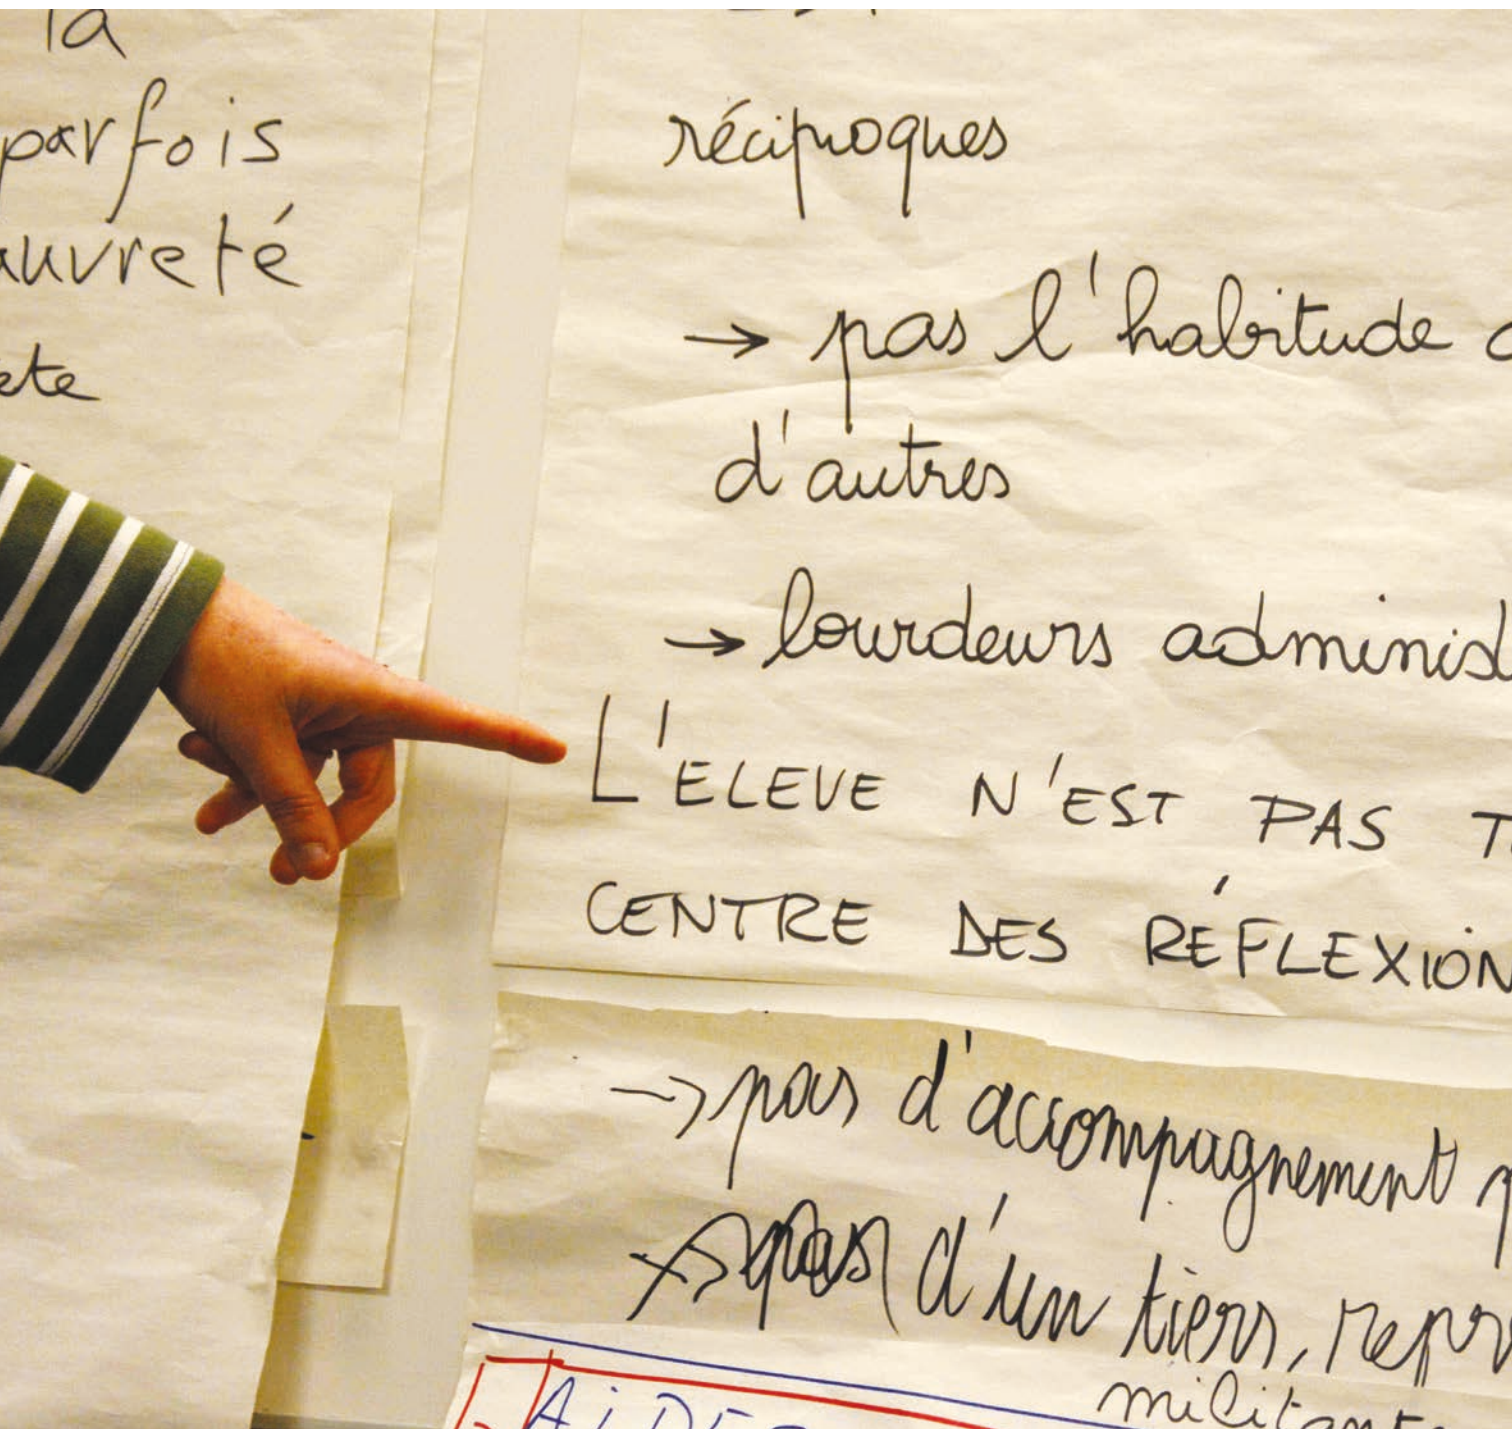 la
parfois
auvreté
ete
réciproques
→ pas l'habitude
d'autres
→ lourdeurs adminis
L'ELEVE N'EST PAS T
CENTRE DES RÉFLEXION
→ pas d'accompagnement p
d'un tiers, repr
militant
AiDES